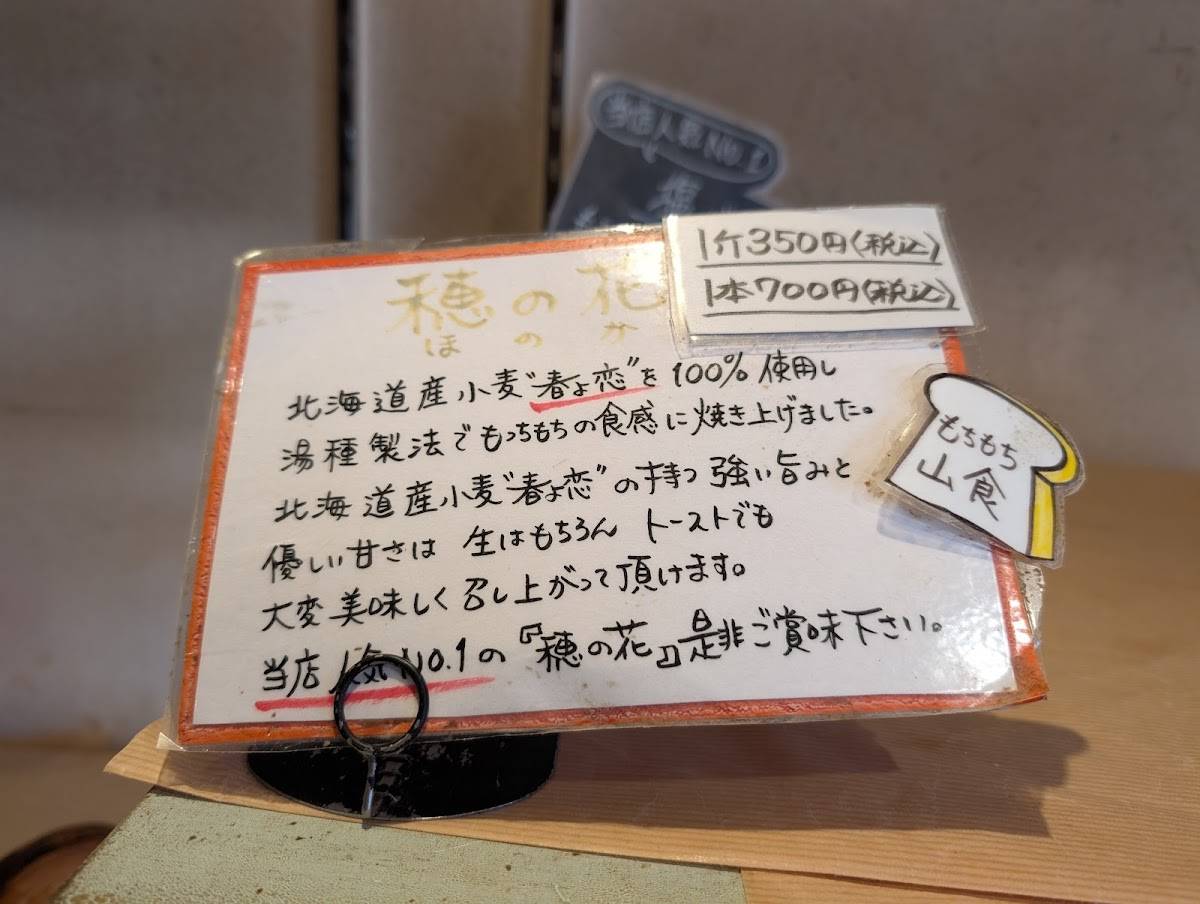 当店人気No.1
塩
1斤350円(税込)
1本700円(税込)
穂の花
ほのか
北海道産小麦"春よ恋"を100%使用し
湯種製法でもっちもちの食感に焼き上げました。
北海道産小麦"春よ恋"の持つ強い旨みと
優しい甘さは 生はもちろん トーストでも
大変美味しく召し上がって頂けます。
当店人気NO.1の『穂の花』是非ご賞味下さい。
もちもち
山食